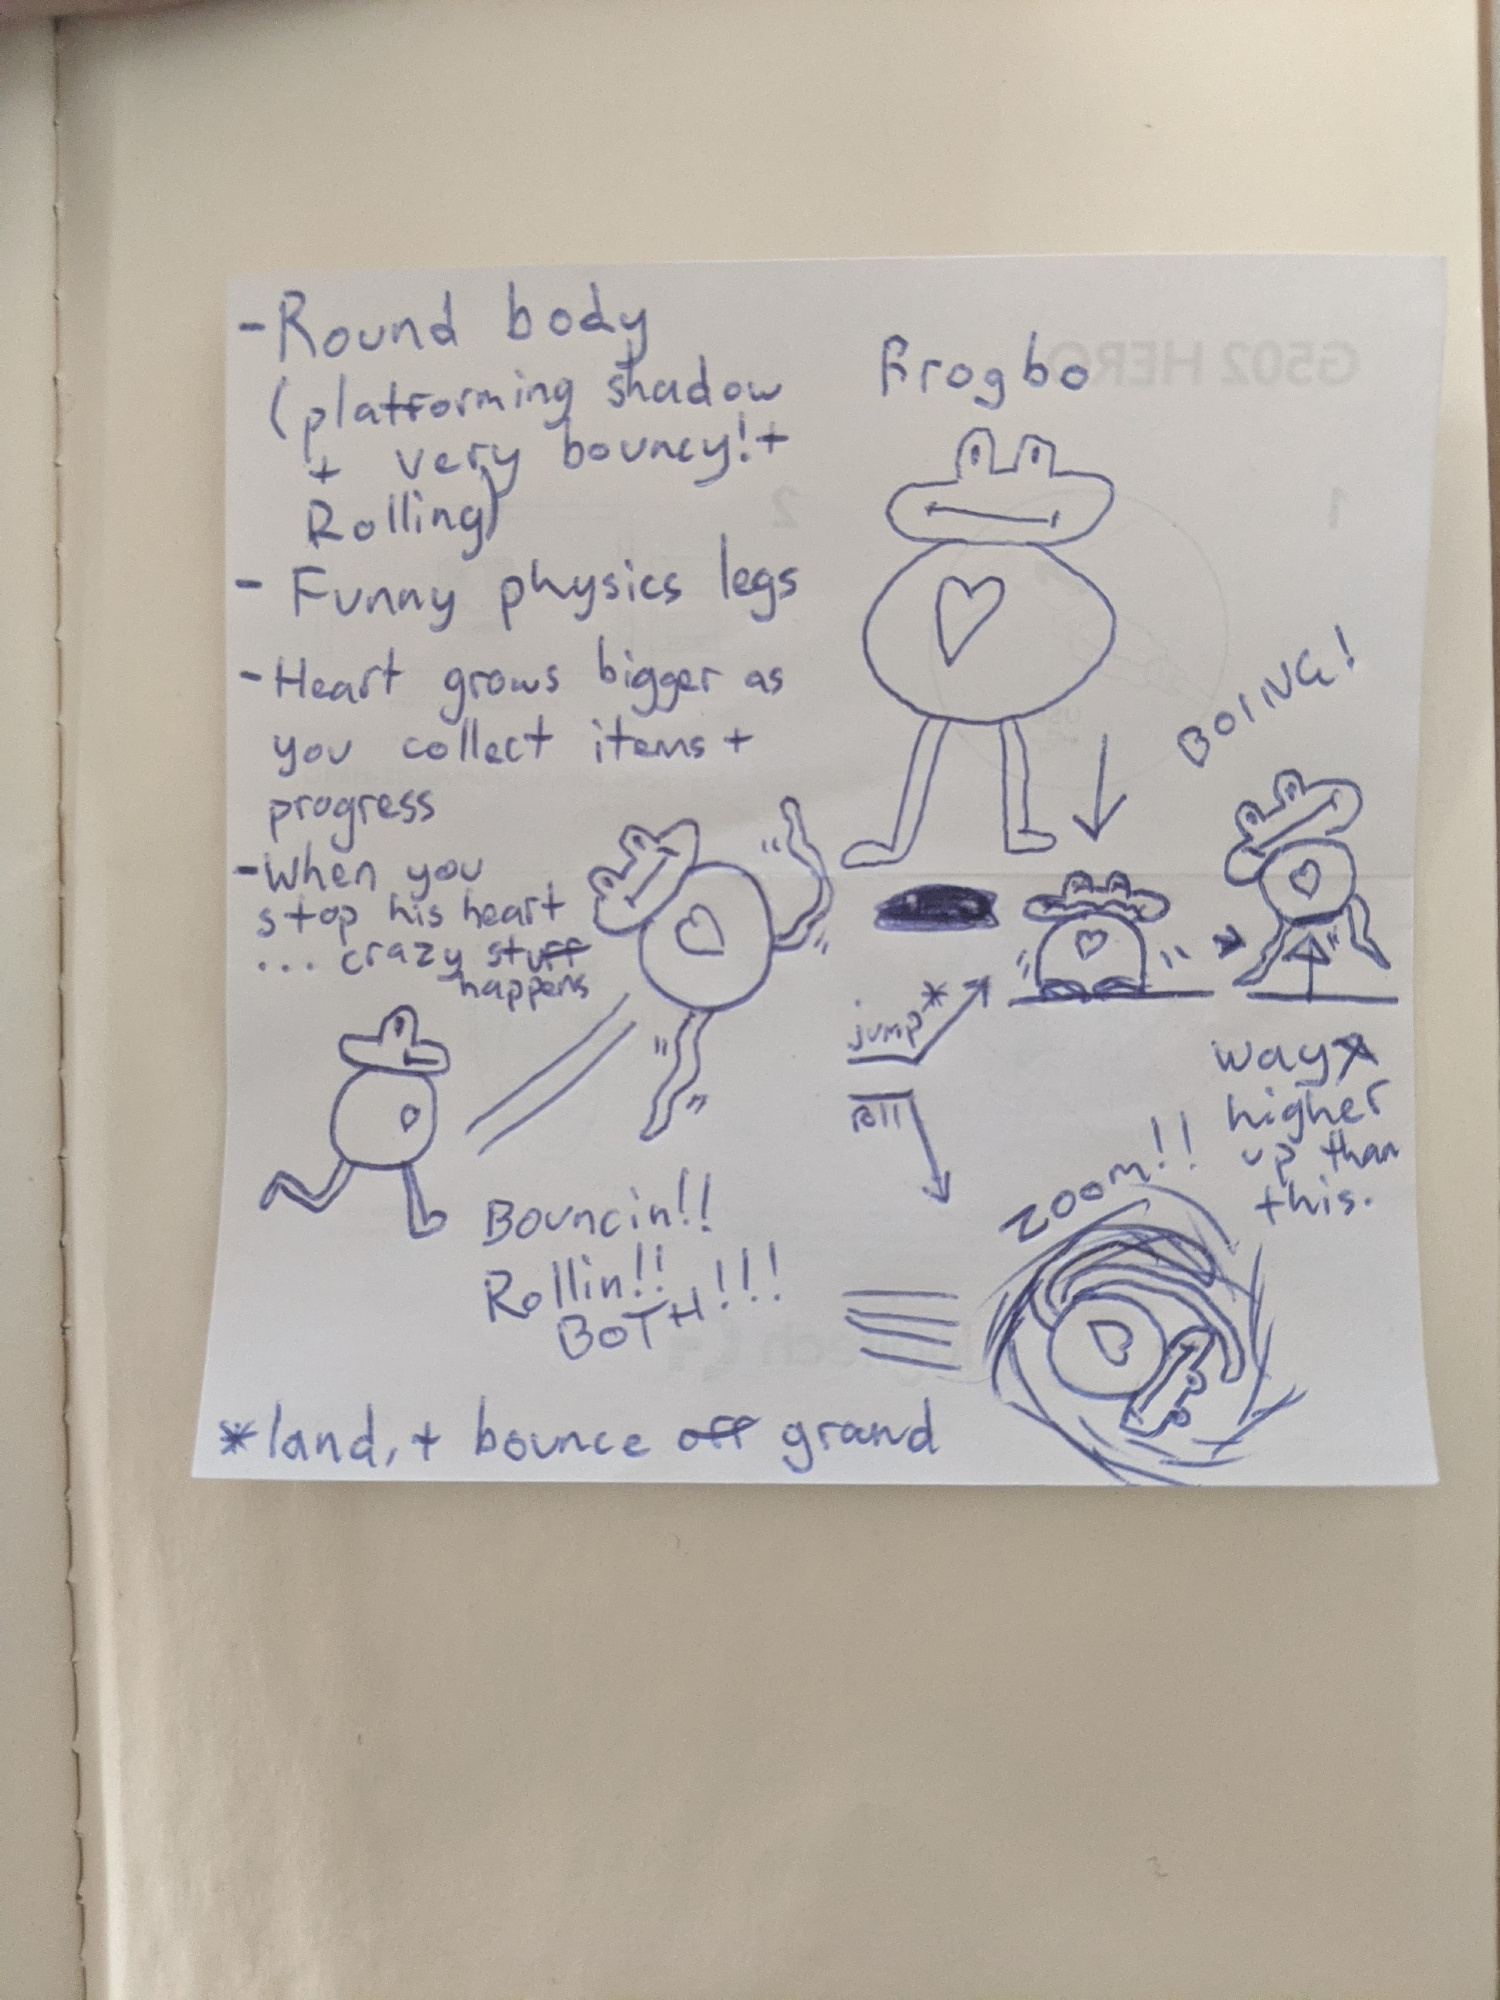 - Round body
(platforming shadow
+ very bouncy! +
Rolling)
- Funny physics legs
- Heart grows bigger as
you collect items +
progress
- When you
stop his heart
... crazy stuff
happens
Frogbo
G502 HERO
2
1
BOING!
jump*
roll
way
higher
up than
this.
ZOOM!!
Bouncin!!
Rollin!!
BOTH!!!
*land, + bounce off grand